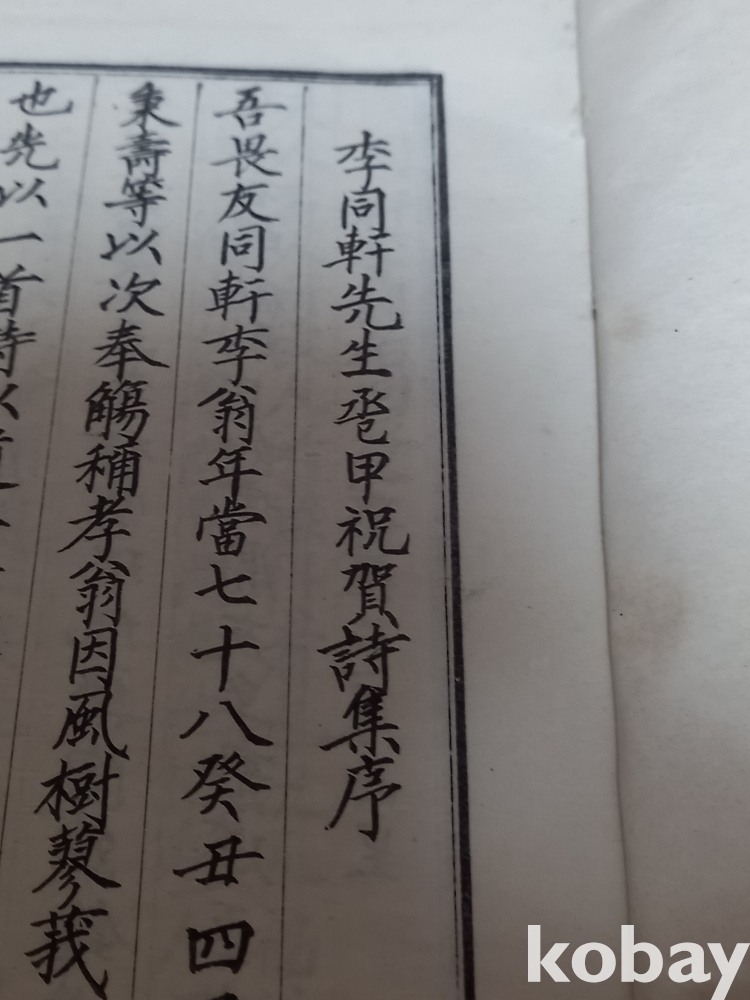 李同軒先生巹甲祝賀詩集序
吾畏友同軒李翁年當七十八癸丑四
秉壽等以次奉觴稱孝翁因風樹蓼莪
也先以一首詩以
kobay